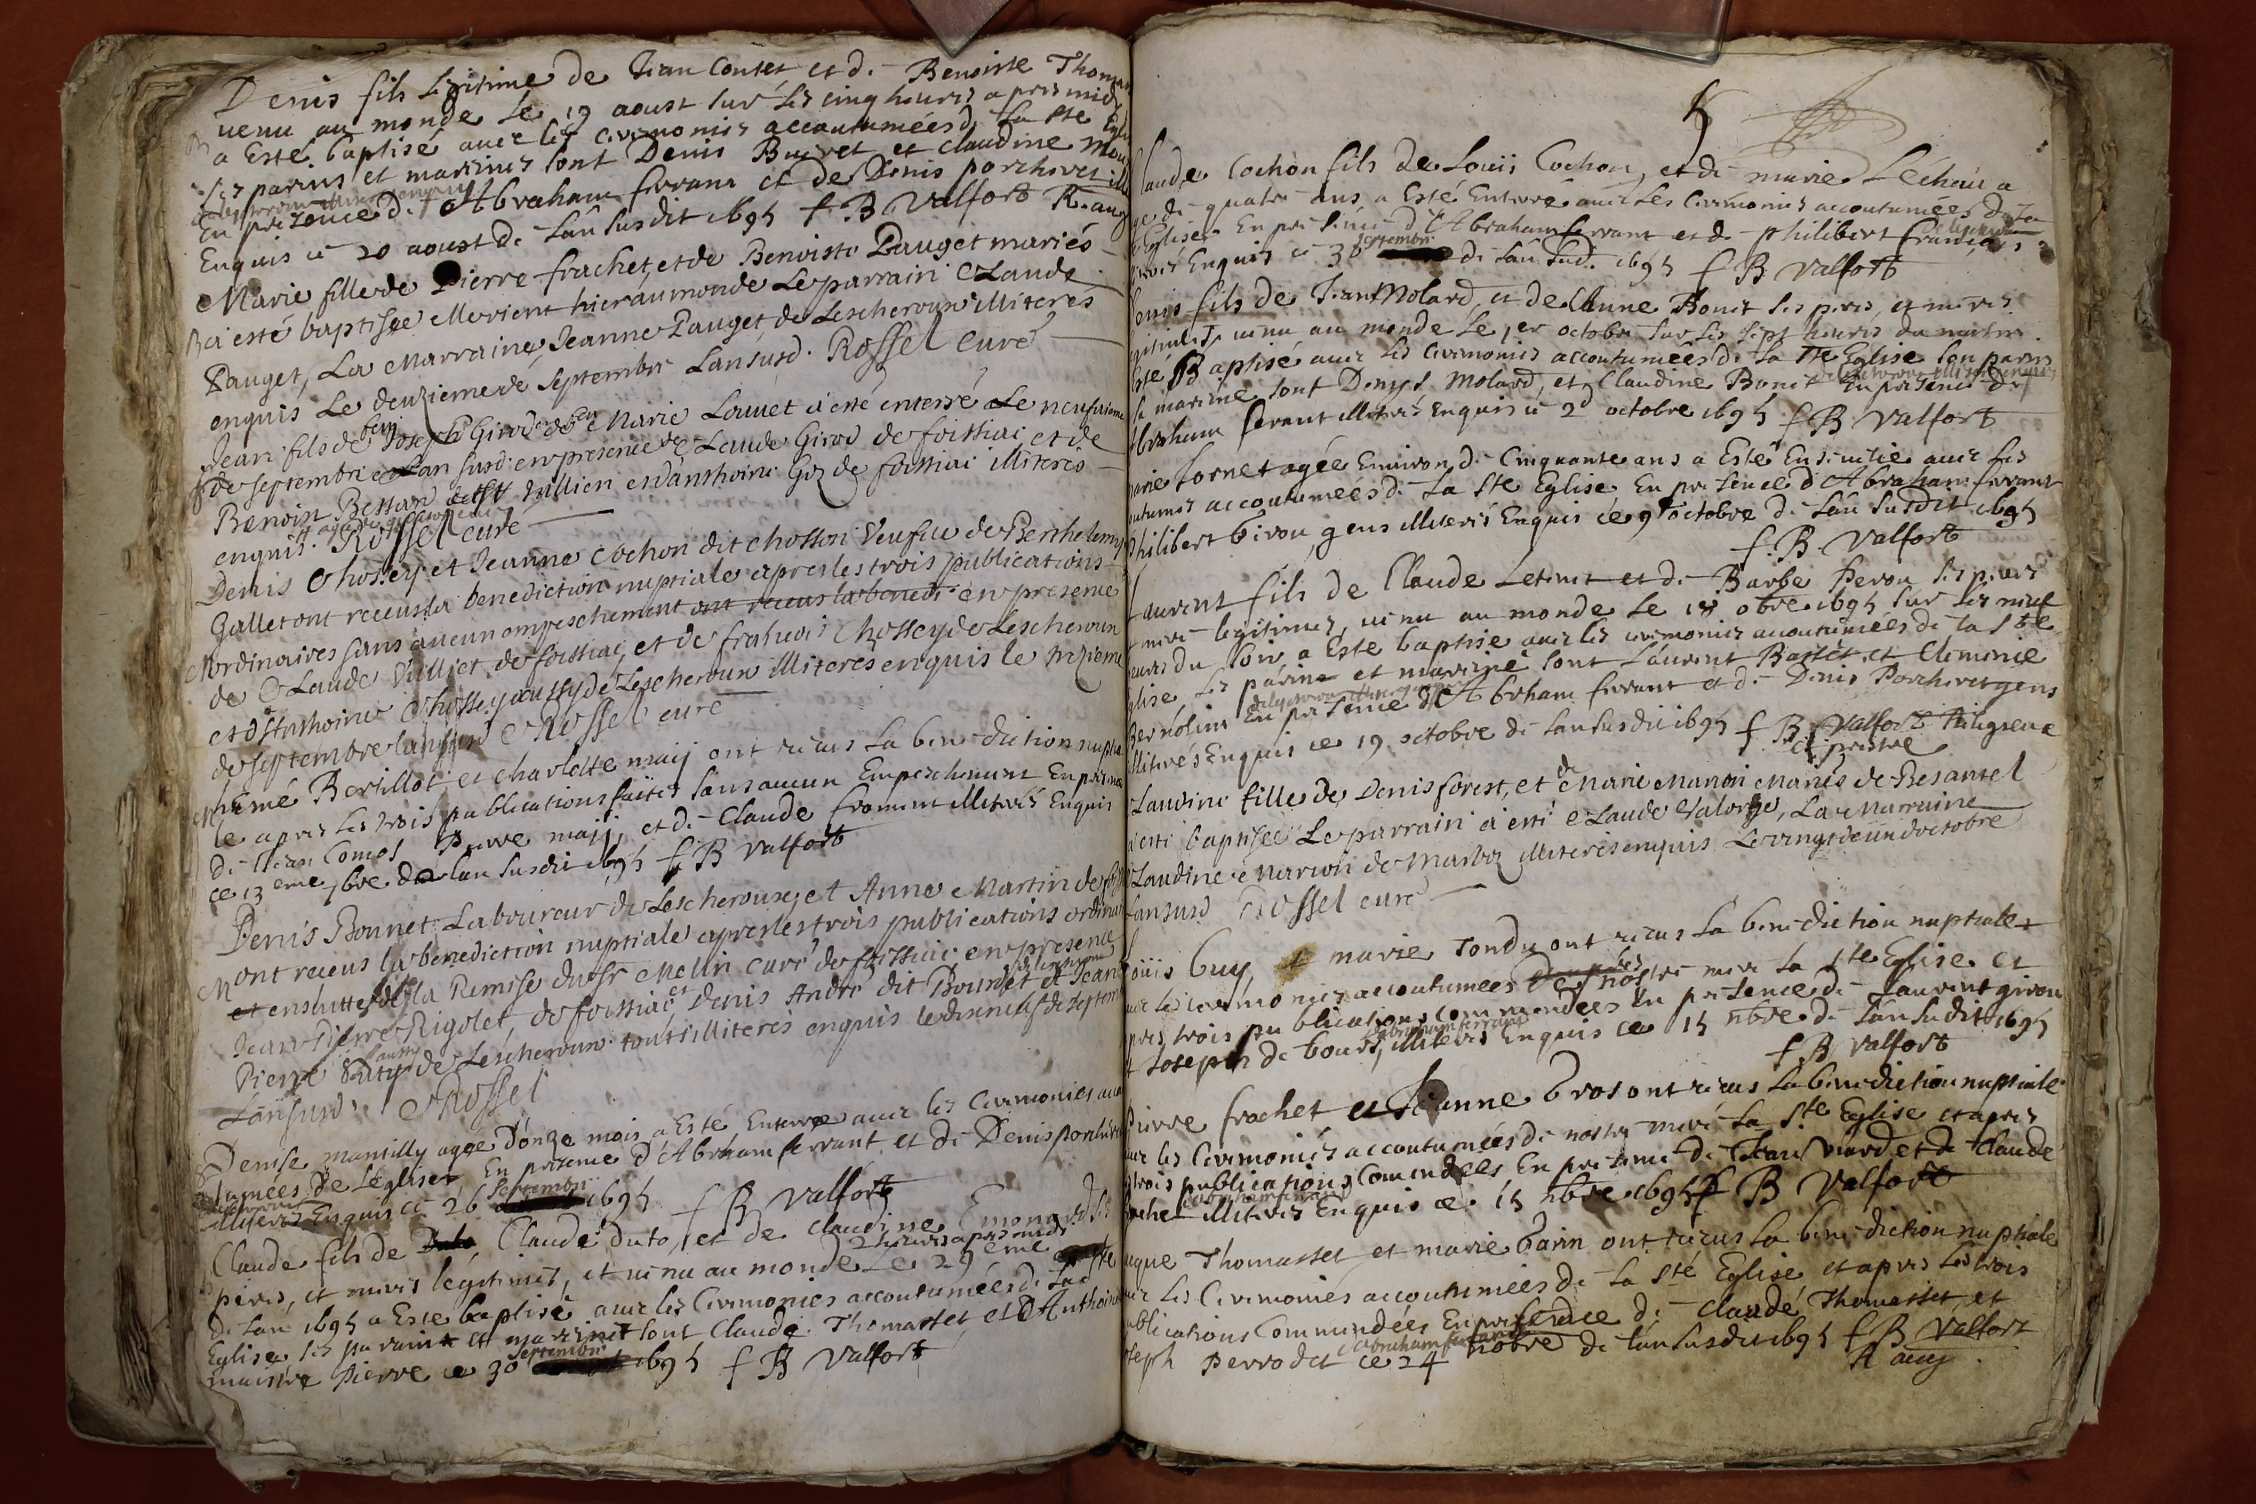 Denis fils legitime de Jean Contet et de Benoiste Thom
uenu au monde le 19 aoust sur les cinq heures apres midy
a Esté baptisé auec les ceremonies accoutumées de la Ste Egli
ses parins et marrines sont Denis Buiret et Claudine Mou
En presence d'Abraham ferrant et de Denis porcheret ille
Enquis ce 20 aoust de lan susdit 1695 f B Valfort R. aug
Marie fille de Pierre frachet, et de Benoiste Pauget mariés
a esté baptisée elle vient hier au monde Le parrain Claude
Pauget, La Marraine Jeanne Pauget de Lescheroux illiterés
enquis Le deuzieme de septembre Lansusd. Rossel Curé
Jean fils de feu Joseph Girod et de Marie Louuet a esté enterré Le neufuieme
de septembre Lan susd. en presence de Claude Girod de foissiai et de
Benoist Bessard Jullien et d'anthoine Goz de foissiai illiterés
enquis. Rossel curé
Denis Chossey et Jeanne Cochon dit Chosson Veufue de Berthelemy
Gallet ont receus la benediction nuptiale apres les trois publications
ordinaires sans aucun empeschement ont receus la benedi en presence
de Claude Vulliet de foissiai, et de frahcois Chossey de Lescheroux
et d'Anthoine Chossey aussy de Lescheroux illiterés enquis le treizieme
de septembre lansusd Rossel curé
Aimé Bertillot, et charlotte maij ont receus la benediction nuptia
le apres les trois publications faittes sans aucun Empeschement En presence
de Jean Comes Pierre maij, et de Claude froment illiterés Enquis
ce 13 eme 7bre de lan susdit 1695 f B Valfort
Denis Bonnet Laboureur de Lescheroux, et Anne Martin de
ont receus la benediction nuptiale apres les trois publications ordina
et ensuitte de la Remise du sr Mellin curé de foissiai en presence
Jean Pierre Rigolet, de foissiac, et Denis André dit Bonnet et Jean
Pierre aussy de Lescheroux tous illiterés enquis le dixneuf de septem
Lansusd. Rossel
Denise mamilly agée d'onze mois a Esté Enterré auec les Ceremonies acc
tumées de Leglise, En presence d'Abraham ferrant et de Denis porcheret
illiterés Enquis ce 26 septembre 1695 f B Valfort
Claude fils de Claude duto, et de Claudine Emonard ses
peres, et meres legitimes, et uenu au monde Le 29 eme 2 heures apres midy
de lan 1695 a Esté baptisé auec les Ceremonies accoutumées de la Ste
Eglise, ses parains et marines sont Claude Thomasset et d'Anthoine
maistre Pierre ce 30 septembre 1695 f B Valfort
5
laude Cochon fils de Louis Cochon, et de marie Lechau a
ge de quatre ans a Esté Enterré auec les Ceremonies accoutumées de la
Eglise, En presence d'Abraham ferrant et de philibert françois
Enquis ce 30 septembre de lan susd. 1695 f B Valfort
enis fils de Jean Molard, et de Anne Bonet ses peres, et meres
egitimes, uenu au monde le 1er octobre sur les sept heures du matin
Esté Baptisé auec les Ceremonies accoutumées de la Ste Eglise son parin
sa marine sont Denys Molard, et Claudine Bonet En presence de
Abraham ferant illiterés Enquis ce 2d octobre 1695 f B Valfort
arie Cornet agée Enuiron de Cinquante ans a Esté Enseuelie auec les
outumes accoutumées de la Ste Eglise En presence d'Abraham ferrant
philibert biron gens illiterés Enquis ce 9 octobre de lan susdit 1695
f. B. Valfort
aurent fils de Claude Letinet et de Barbe heron ses peres
mere legitimes, uenu au monde le 18 obre 1695 sur les neuf
eures du soir a Esté baptisé auec les ceremonies accoutumées de la Ste
glise ses parine et marine sont Laurent Bastet et Clemence
Bernolin En presence d'Abraham ferrant et de Denis Porcheret gens
illiterés Enquis ce 19 octobre de lan susdit 1695 f B Valfort Religieux
et prestre
Claudine fille de Denis forest, et de Marie Manon Mariés de Besantel
a esté baptisée Le parrain a esté Claude Valorge, La Marraine
Claudine Marion de Marboz illiterés enquis Le vingtdeun d'octobre
Lansusd Rossel curé
Louis Guy, et marie Tondu ont receus la benediction nuptiale
auec les ceremonies accoutumées de nostre mere la Ste Eglise et
apres trois publications commandées En presence de Laurent guron
et Joseph de bours, illiterés Enquis ce 15 nbre de lan susdit 1695
f. B Valfort
Pierre frachet et Jeanne Gros ont receus la benediction nuptiale
auec les Ceremonies accoutumées de nostre mere la Ste Eglise et apres
trois publications Comendées En presence de Jean Viard et de Claude
ochet illiterés Enquis ce 15 nbre 1695 f B Valfort
aque Thomasset et marie Garin ont receus la benediction nuptiale
auec Les Ceremonies accoutumées de la Ste Eglise, et apres Les trois
ublications Commandées En presence de Claude Thomasset, et
oseph perrodet ce 24 nobre de lan susdit 1695 f B Valfort
R aug